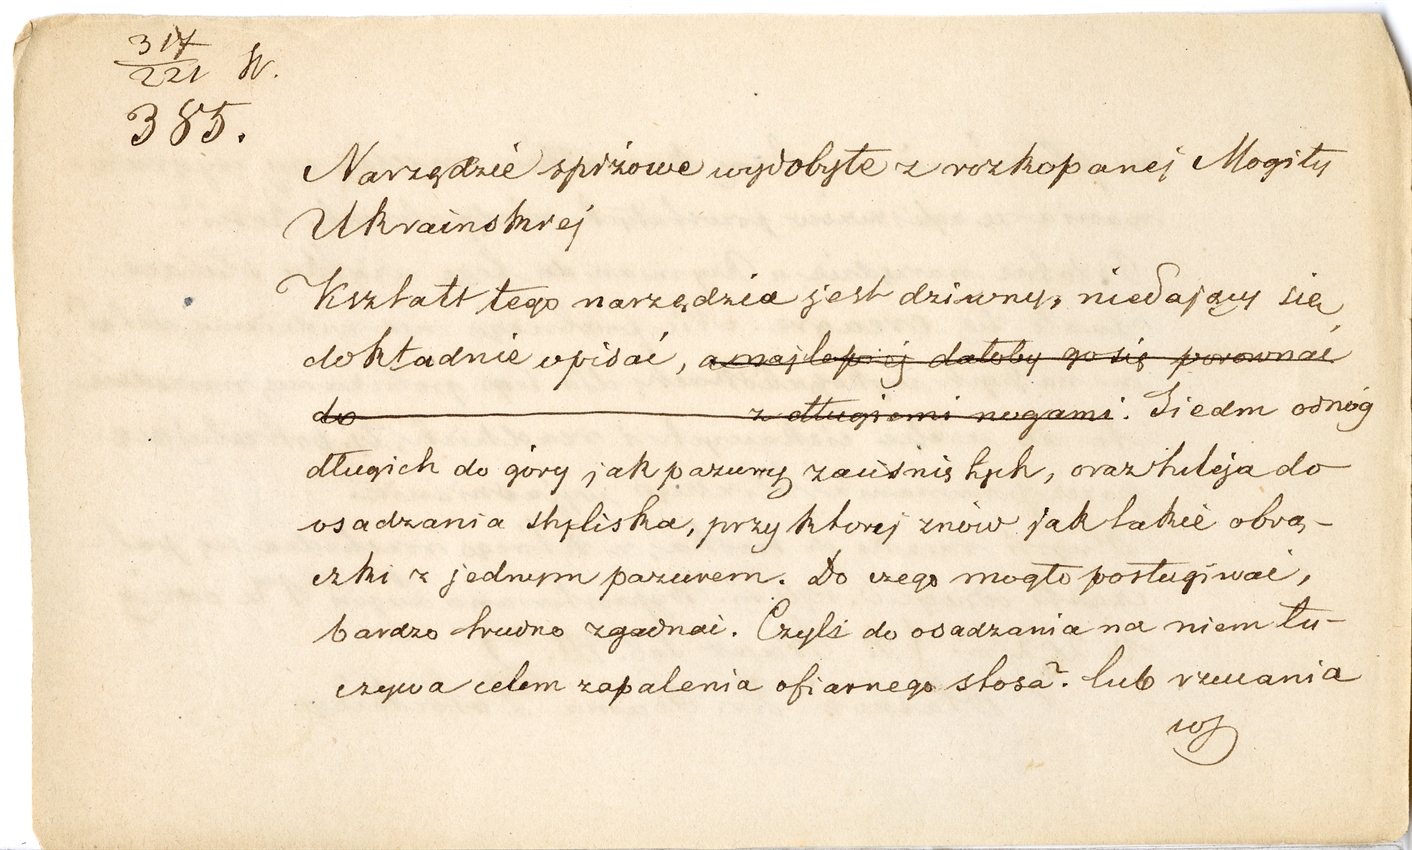 317
221 W.
385.
Narzędzie spiżowe wydobyte z rozkopanej Mogiły
Ukrainskiej
Kształt tego narzędzia jest dziwny, niedający się
dokładnie opisać, a najlepiej dałoby go się porownać
do z długiemi nogami. Siedm odnóg
długich do góry jak pazury zaciśniętych, oraz tuleja do
osadzania styliska, przy ktorej znów jak takie obrą-
czki z jednym pazurem. Do czego mogło posługiwać,
bardzo trudno zgadnąć. Czyli do osadzania na niem łu-
czywa celem zapalenia ofiarnego stosa?. lub rzucania